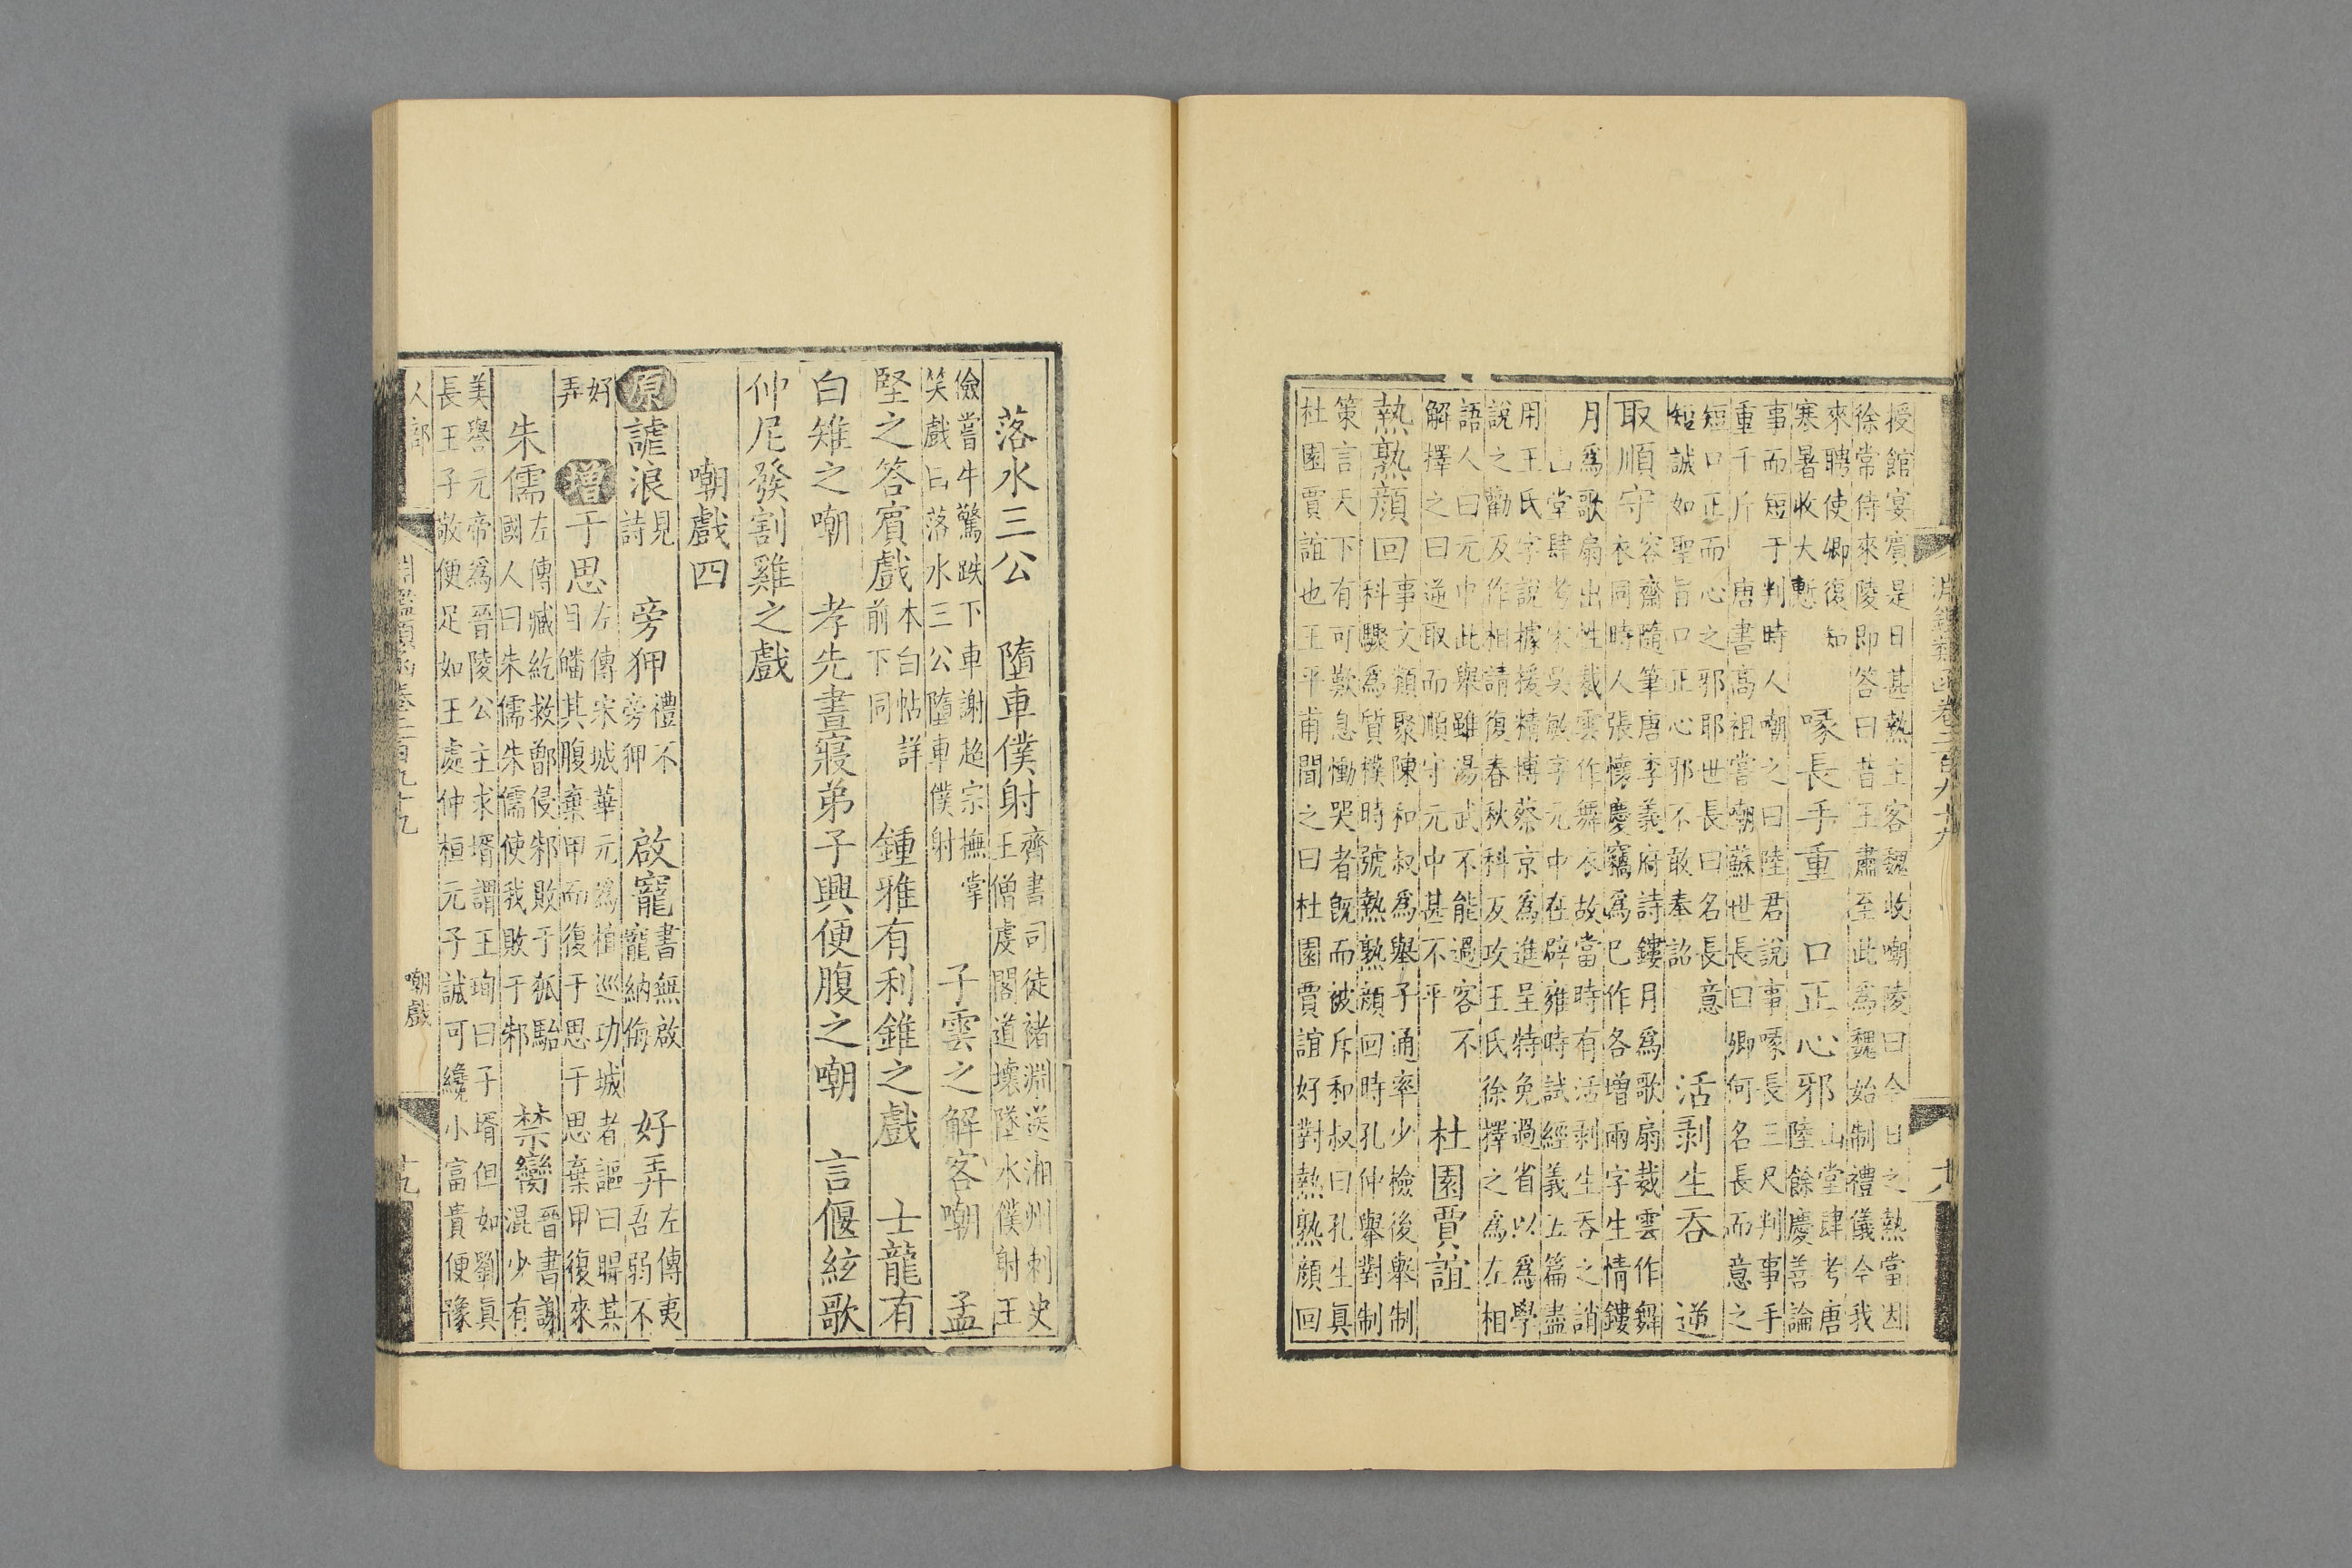 授館宴賓是日甚熱主客魏收嘲陵曰今日之熱當因
徐常侍來陵即答曰昔王肅至此為魏始制禮儀今我
來聘使卿復知
寒暑收大慙
喙長手重
口正心邪
山堂肆考唐
陸餘慶善論
事而短于判時人嘲之曰陸君說事喙長三尺判事手
重千斤
唐書高祖嘗嘲蘇世長曰卿何名長而意之
短口正而心之邪耶世長曰名長意
短誠如聖旨口正心邪不敢奉詔
活剥生吞
逆
取順守
容齋隨筆唐李義府詩鏤月為歌扇裁雲作舞
衣同時人張懷慶竊為已作各增兩字生情鏤
月為歌扇出性裁雲作舞衣故當時有活剥生吞之誚
山堂肆考宋吳敏字元中在辟雍時試經義五篇盡
用王氏字說援據精博蔡京為進呈特免過省以為學
說之勸及作相請復春秋科反攻王氏徐擇之為左相
語人曰元中此舉雖湯武不能過客不
解擇之曰逆取而順守元中甚不平
杜園賈誼
熱熟顏回
事文類聚陳和叔為舉子通率少檢後舉制
科驟為質樸時號熱熟顏回時孔仲舉對制
策言天下有可歎息慟哭者既而被斥和叔曰孔生真
杜園賈誼也王平甫聞之曰杜園賈誼好對熱熟顏回
淵鑑類函卷二百九十九
落水三公
墮車僕射
齊書司徒褚淵送湘州刺史
王僧虔閣道壞墜水僕射王
儉嘗牛驚跌下車謝超宗撫掌
笑戲曰落水三公墮車僕射
子雲之解客嘲
孟
堅之答賓戲
本白帖詳
前下同
鍾雅有利錐之戲
士龍有
白雉之嘲
孝先晝寢弟子興便腹之嘲
言偃絃歌
仲尼發割雞之戲
嘲戲四
原
謔浪
見
詩
旁狎
禮不
旁狎
啟寵
書無啟
寵納侮
好弄
左傳夷
吾弱不
好
弄
增
于思
左傳宋城華元為植巡功城者謳曰睅其
目皤其腹棄甲而復于思于思棄甲復來
朱儒
左傳臧紇救鄫侵邾敗于狐駘
國人曰朱儒朱儒使我敗于邾
禁臠
晉書謝
混少有
美譽元帝為晉陵公主求壻謂王珣曰子壻但如劉真
長王子敬便足如王處仲桓元子誠可纔小富貴便豫
人部
淵鑑類函卷二百九十九
嘲戲